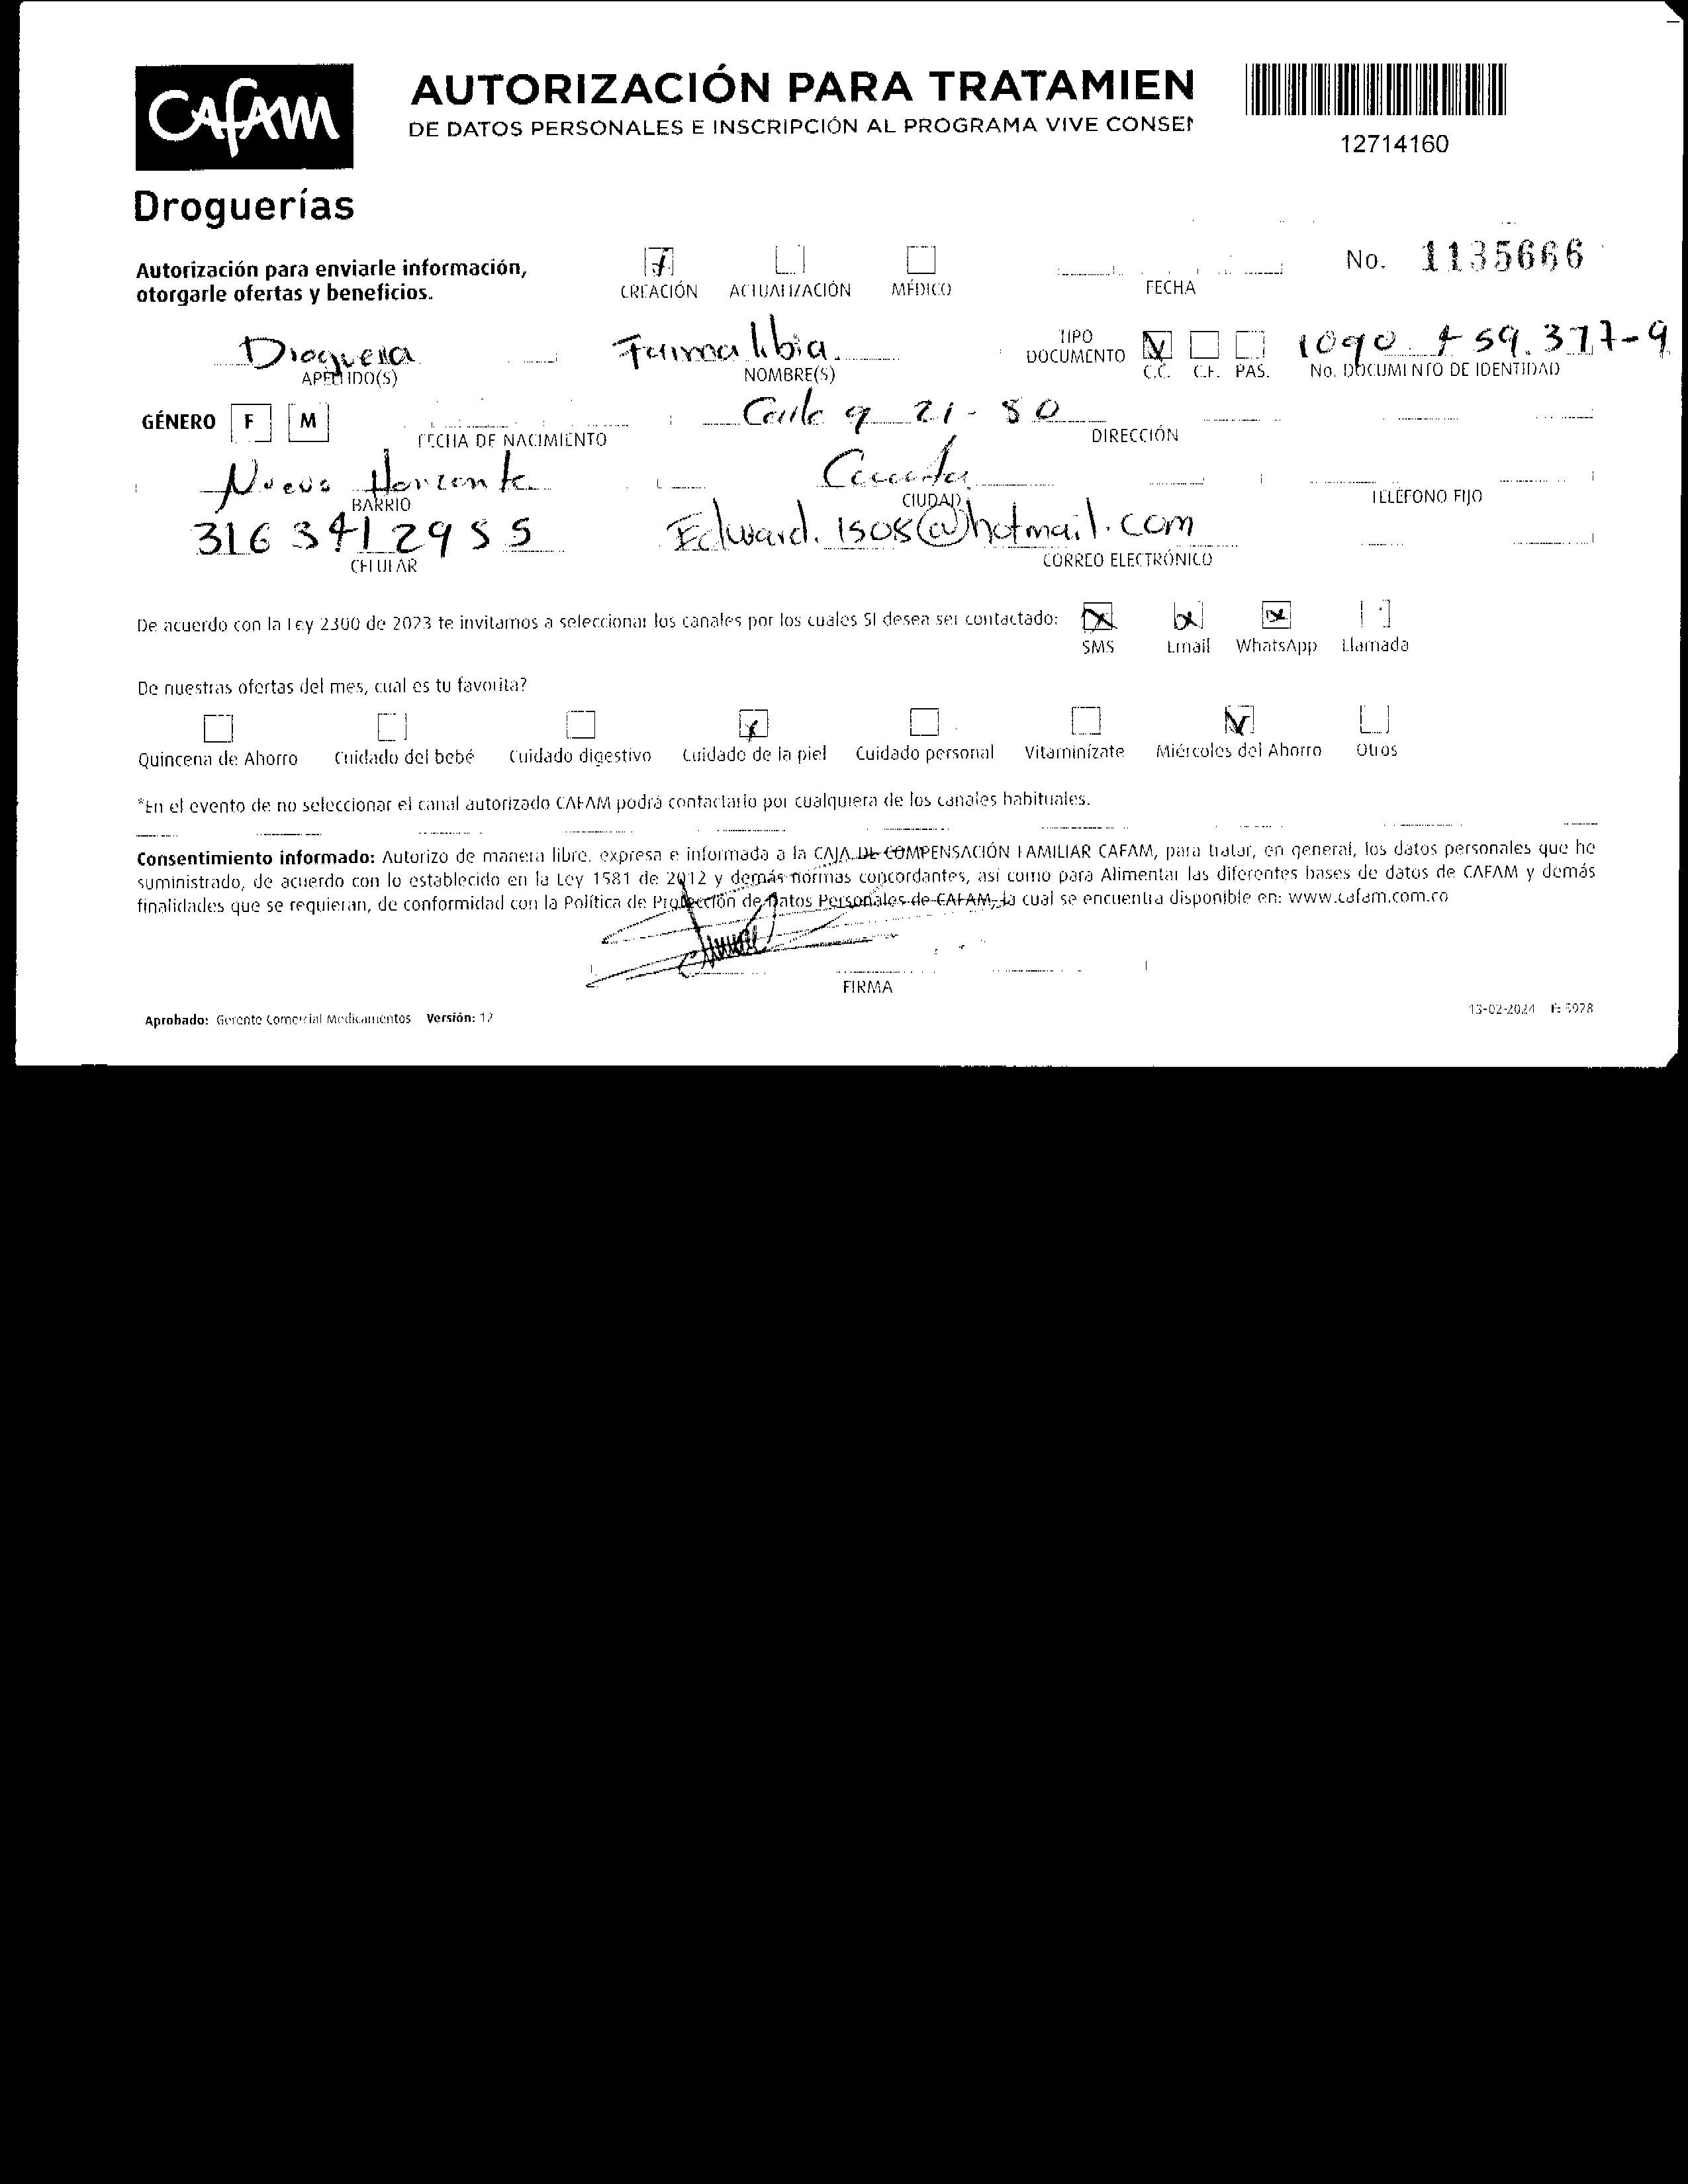 CAFAM
Droguerías
AUTORIZACIÓN PARA TRATAMIEN
DE DATOS PERSONALES E INSCRIPCIÓN AL PROGRAMA VIVE CONSEN
12714160
Autorización para enviarle información,
otorgarle ofertas y beneficios.
CREACIÓN ACTUALIZACIÓN MÉDICO
FECHA
No. 1135666
Drogueria Farmalibia.
APELLIDO(S) NOMBRE(S)
TIPO DOCUMENTO C.C. C.E. PAS.
1090 459.377-9
No. DOCUMENTO DE IDENTIDAD
GÉNERO F M
FECHA DE NACIMIENTO
Calle 9 21-80
DIRECCIÓN
Nuevo Horizonte
BARRIO
Cucuta
CIUDAD
TELÉFONO FIJO
316 3412955
CELULAR
Edward.1508@hotmail.com
CORREO ELECTRÓNICO
De acuerdo con la Ley 2300 de 2023 te invitamos a seleccionar los canales por los cuales SI desea ser contactado:
SMS Email WhatsApp Llamada
De nuestras ofertas del mes, cual es tu favorita?
Quincena de Ahorro Cuidado del bebé Cuidado digestivo Cuidado de la piel Cuidado personal Vitaminízate Miércoles del Ahorro Otros
*En el evento de no seleccionar el canal autorizado CAFAM podrá contactarlo por cualquiera de los canales habituales.
Consentimiento informado: Autorizo de manera libre, expresa e informada a la CAJA DE COMPENSACIÓN FAMILIAR CAFAM, para tratar, en general, los datos personales que he
suministrado, de acuerdo con lo establecido en la Ley 1581 de 2012 y demás normas concordantes, así como para Alimentar las diferentes bases de datos de CAFAM y demás
finalidades que se requieran, de conformidad con la Política de Protección de Datos Personales de CAFAM, la cual se encuentra disponible en: www.cafam.com.co
FIRMA
Aprobado: Gerente Comercial Medicamentos Versión: 12
13-02-2024 F: 5928